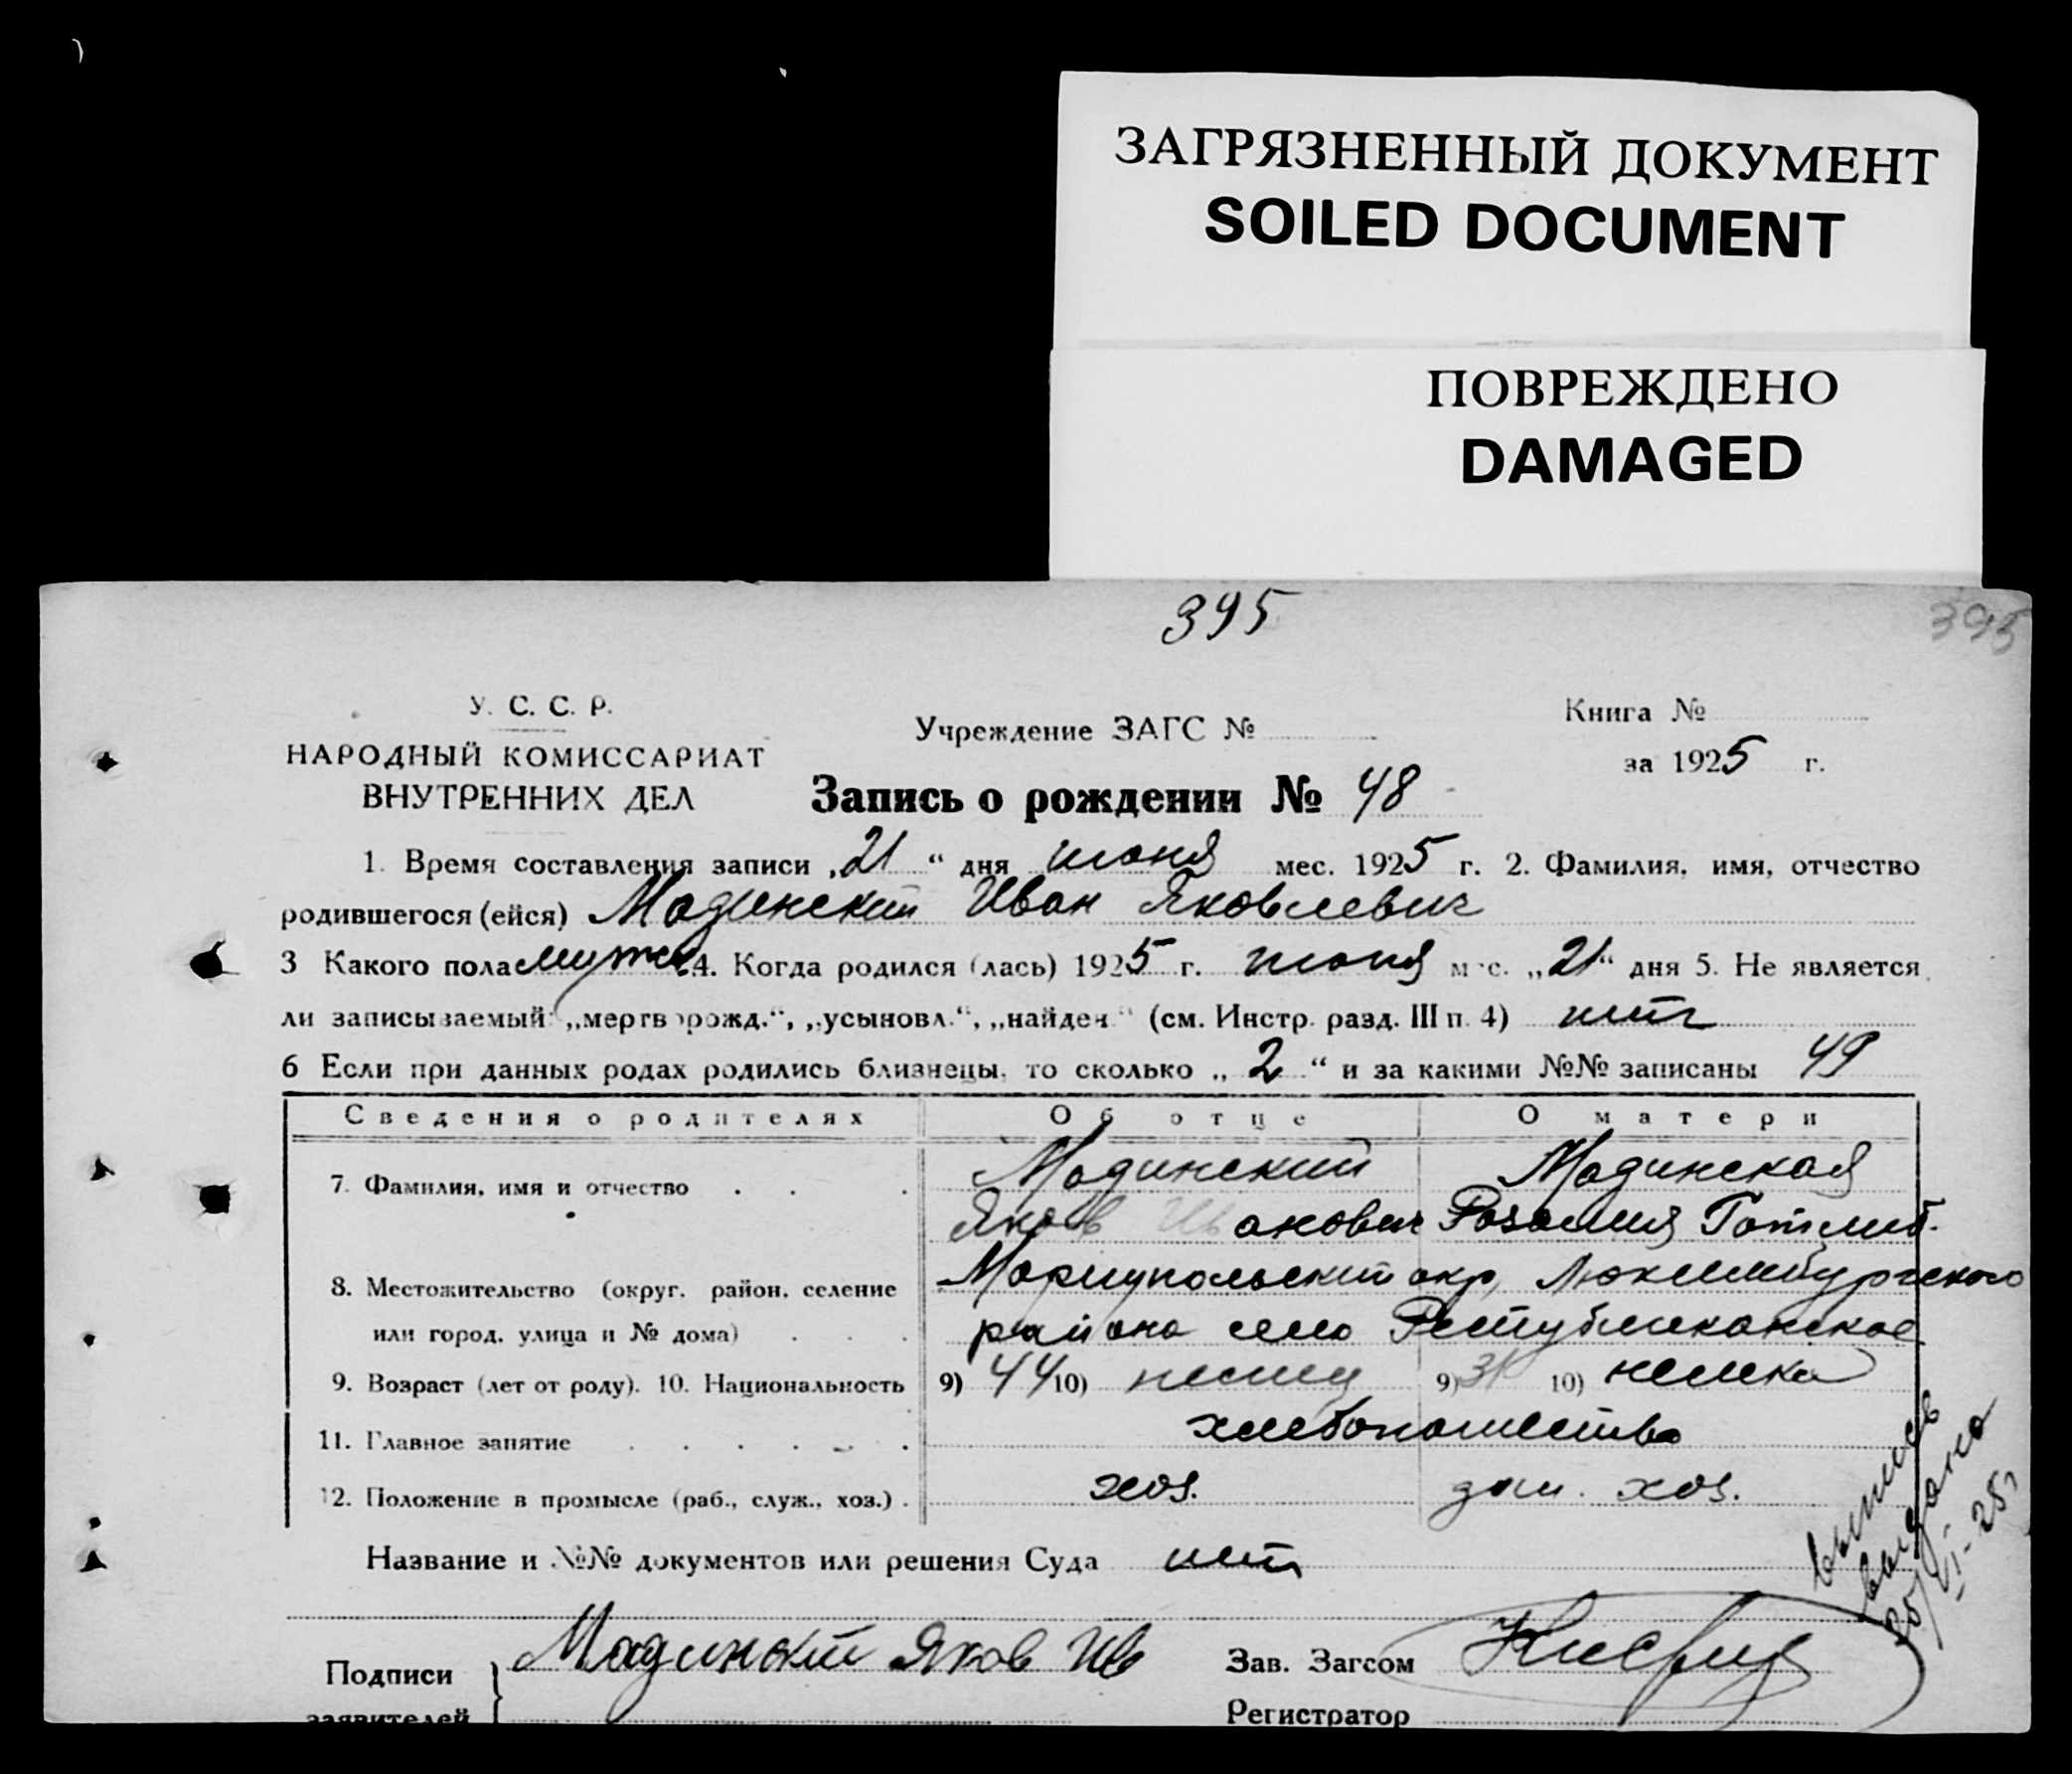 ЗАГРЯЗНЕННЫЙ ДОКУМЕНТ
SOILED DOCUMENT
ПОВРЕЖДЕНО
DAMAGED
395
395
У. С. С. Р.
НАРОДНЫЙ КОМИССАРИАТ
ВНУТРЕННИХ ДЕЛ
Учреждение ЗАГС №
Книга №
за 1925 г.
Запись о рождении № 48
1. Время составления записи „21“ дня июня мес. 1925 г. 2. Фамилия, имя, отчество
родившегося (ейся) Мадинский Иван Яковлевич
3 Какого пола муже 4. Когда родился (лась) 1925 г. июня мес. „21“ дня 5. Не является
ли записываемый „мертворожд.“, „усыновл.“, „найден“ (см. Инстр. разд. III п. 4) нет
6 Если при данных родах родились близнецы, то сколько „2“ и за какими №№ записаны 49
Сведения о родителях Об отце О матери
7. Фамилия, имя и отчество Мадинский Мадинская
Яков Иванович Розалия Готлиб.
8. Местожительство (округ, район, селение Мариупольский окр, Люксембургского
или город, улица и № дома) района село Республиканское
9. Возраст (лет от роду). 10. Национальность 9) 44 10) немец 9) 31 10) немка
11. Главное занятие хлебопашество
12. Положение в промысле (раб., служ., хоз.) хоз. дом. хоз.
Название и №№ документов или решения Суда нет
выпись
выдана
25/VI-25г
Подписи Мадинский Яков Ив Зав. Загсом
заявителей Регистратор